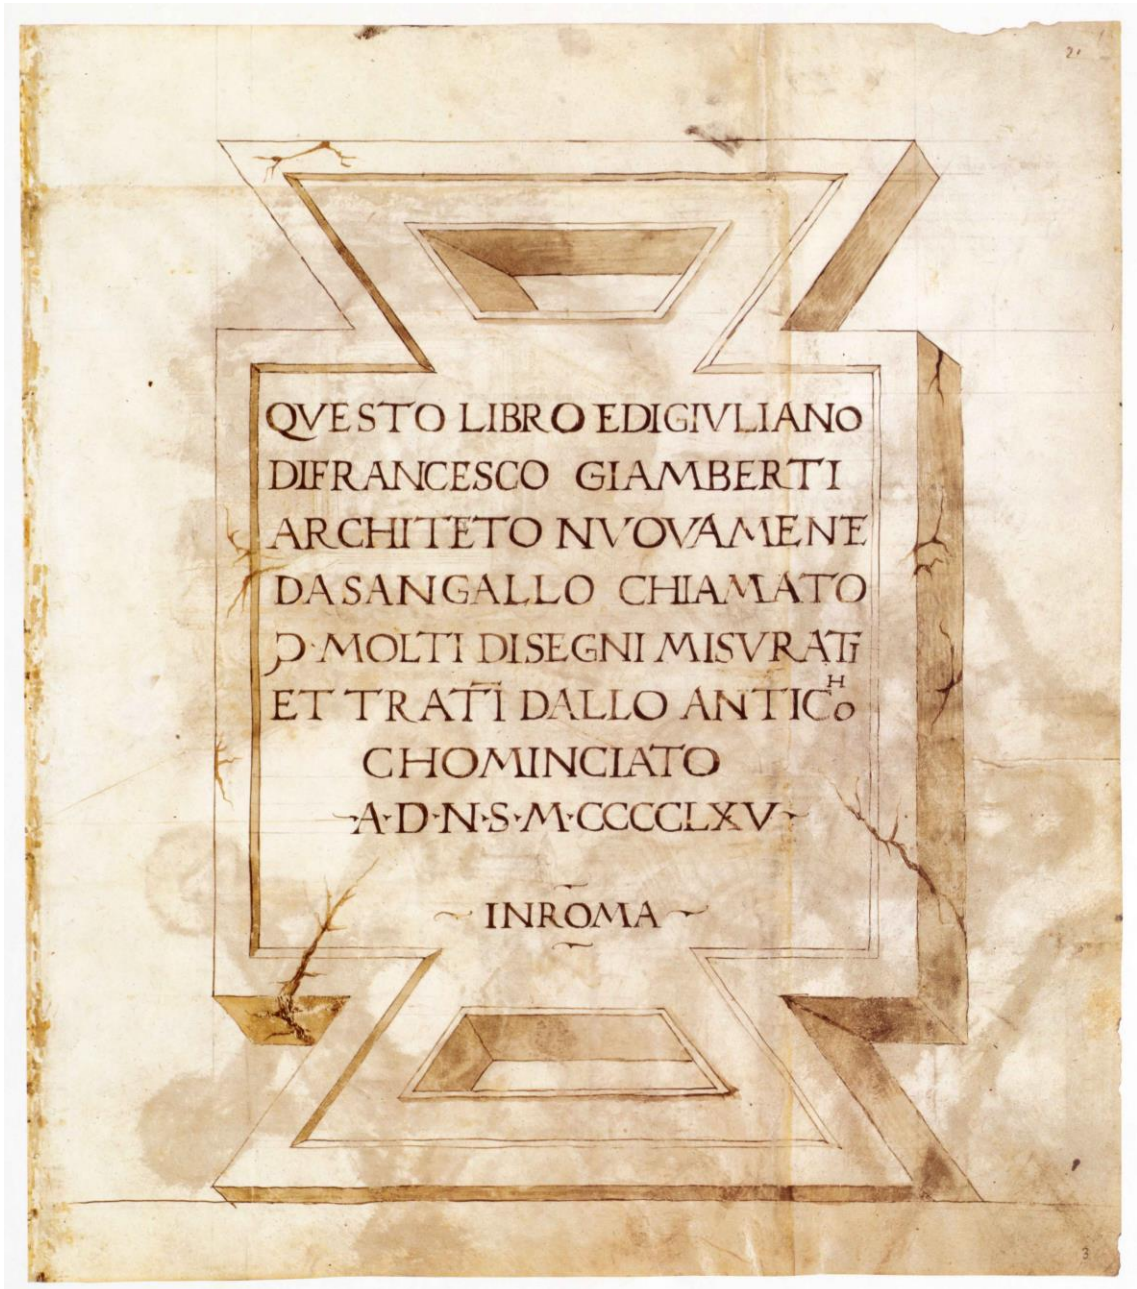 2
QVESTO LIBRO EDIGIVLIANO
DIFRANCESCO GIAMBERTI
ARCHITETO NVOVAMENE
DASANGALLO CHIAMATO
Ↄ·MOLTI DISEGNI MISVRATI
ET TRATTI DALLO ANTICHO
CHOMINCIATO
~A·D·N·S·M·CCCCCLXV~
~INROMA~
3